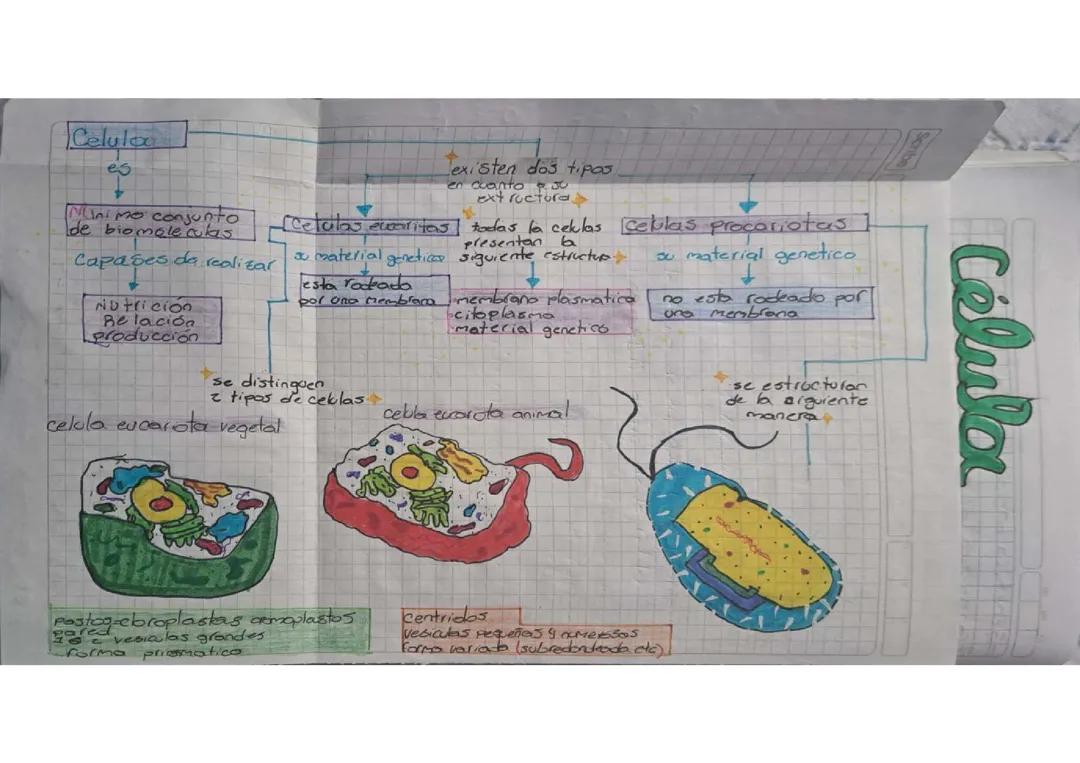 Celula
es
existen dos tipos
en cuanto a su
extructura
Minimo conjunto
de biomoleculas
Capases de realizar
Nutrición
Relación
producción
Celulas eucaritas
su material genetico
esta rodeado
por una membrana
todas la celulas
presentan la
siguiente estructura
membrana plasmatica
citoplasma
material genetico
celulas procariotas
su material genetico
no esta rodeado por
una membrana
se distinguen
2 tipos de celulas
se estructuran
de la siguiente
manera
celula eucariota vegetal
celula eucariota animal
pared
vesiculas grandes
forma prismatico
centriolos
vesiculas pequeñas y numerosos
forma variada (subredondeada etc)
Célula